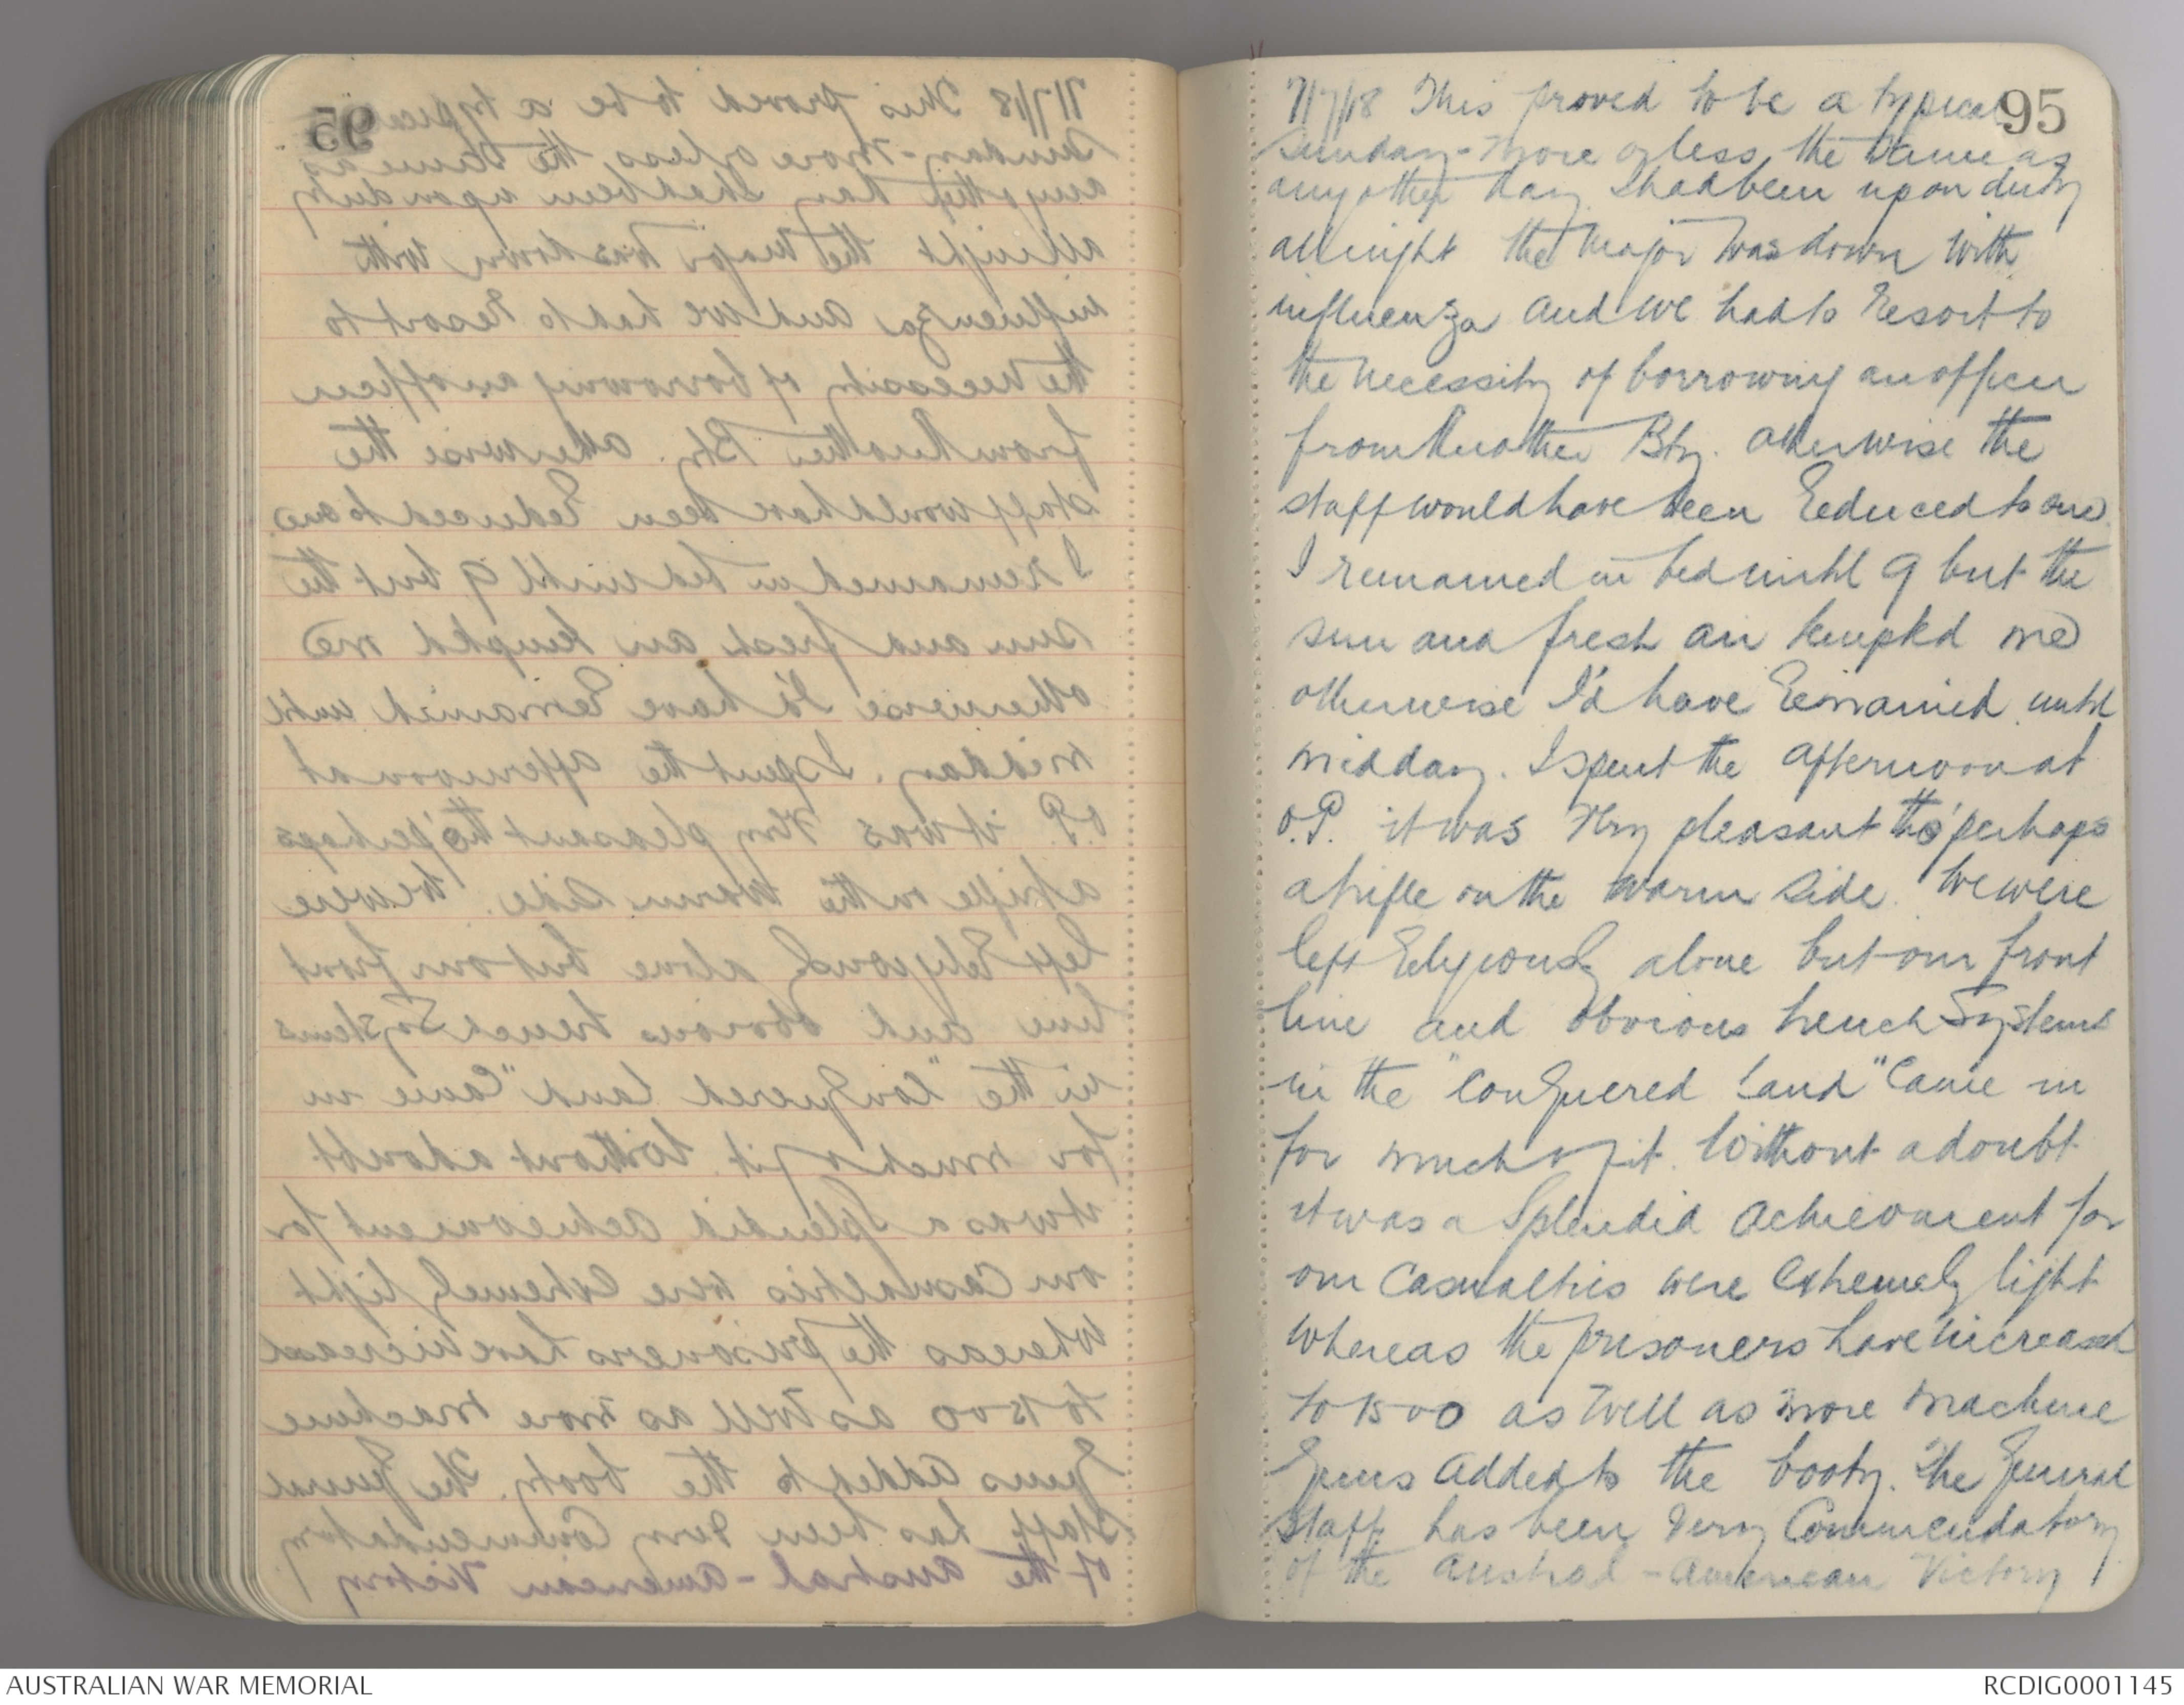 95
7/7/18 This proved to be a typical
Sunday - more or less the same as
any other day. I had been upon duty
all night the Major was down with
influenza and we had to resort to
the necessity of borrowing an officer
from another Bty. otherwise the
staff would have been reduced to one.
I remained in bed until 9 but the
sun and fresh air tempted me
otherwise I'd have remained until
midday. I spent the afternoon at
O.P. it was very pleasant tho' perhaps
a trifle on the warm side. We were
left religiously alone but our front
line and obvious trench systems
in the "Conquered Land" came in
for much of it. Without a doubt
it was a splendid achievement for
our casualties were extremely light
whereas the prisoners have increased
to 1500 as well as more machine
guns added to the booty. The General
Staff has been very Commendatory
of the Austral-American Victory
AUSTRALIAN WAR MEMORIAL
RCDIG0001145